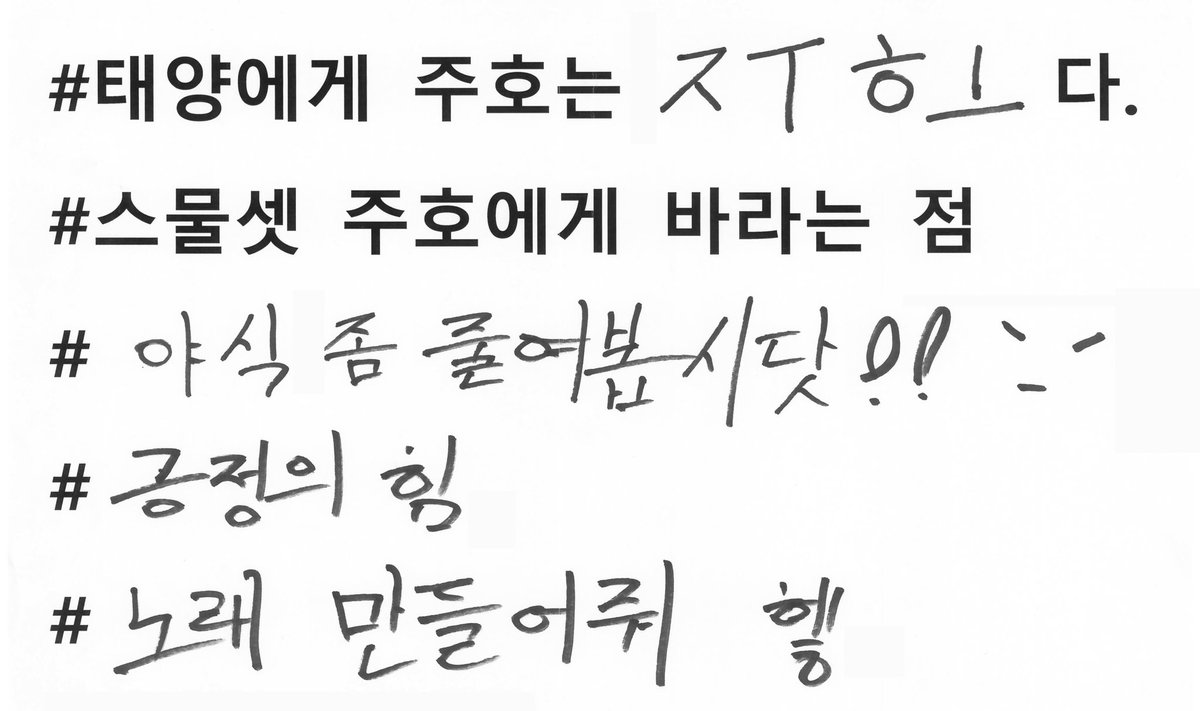 #태양에게 주호는 ㅈㅜㅎㅗ 다.
#스물셋 주호에게 바라는 점
# 야식 좀 줄여봅시닷!!
# 긍정의 힘
# 노래 만들어줘 헿